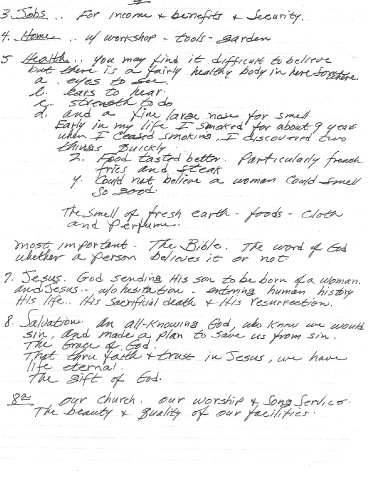 3. Jobs .. For income & benefits & Security.
4. Home .. w/ workshop - tools - garden
5 Health .. you may find it difficult to believe
but there is a fairly healthy body in here somewhere
a. eyes to see
b. ears to hear
c. strength to do
d. and a fine large nose for smell
Early in my life I smoked for about 9 years
when I ceased smoking, I discovered two
things quickly
2. Food tasted better. Particularly french
fries and steak
y. Could not believe a woman could smell
so good.
The smell of fresh earth - foods - cloth
and perfume.
most important - The Bible. The word of God
whether a person believes it or not
7. Jesus. God sending His son to be born of a woman.
and Jesus - w/o hesitation - entering human history
His life.. His sacrificial death & His resurrection.
8. Salvation. An all-knowing God, who knew we would
sin, and made a plan to save us from sin.
The Grace of God.
That thru faith & trust in Jesus, we have
life eternal.
The gift of God.
8a Our church. Our worship & Song Service.
The beauty & quality of our facilities.